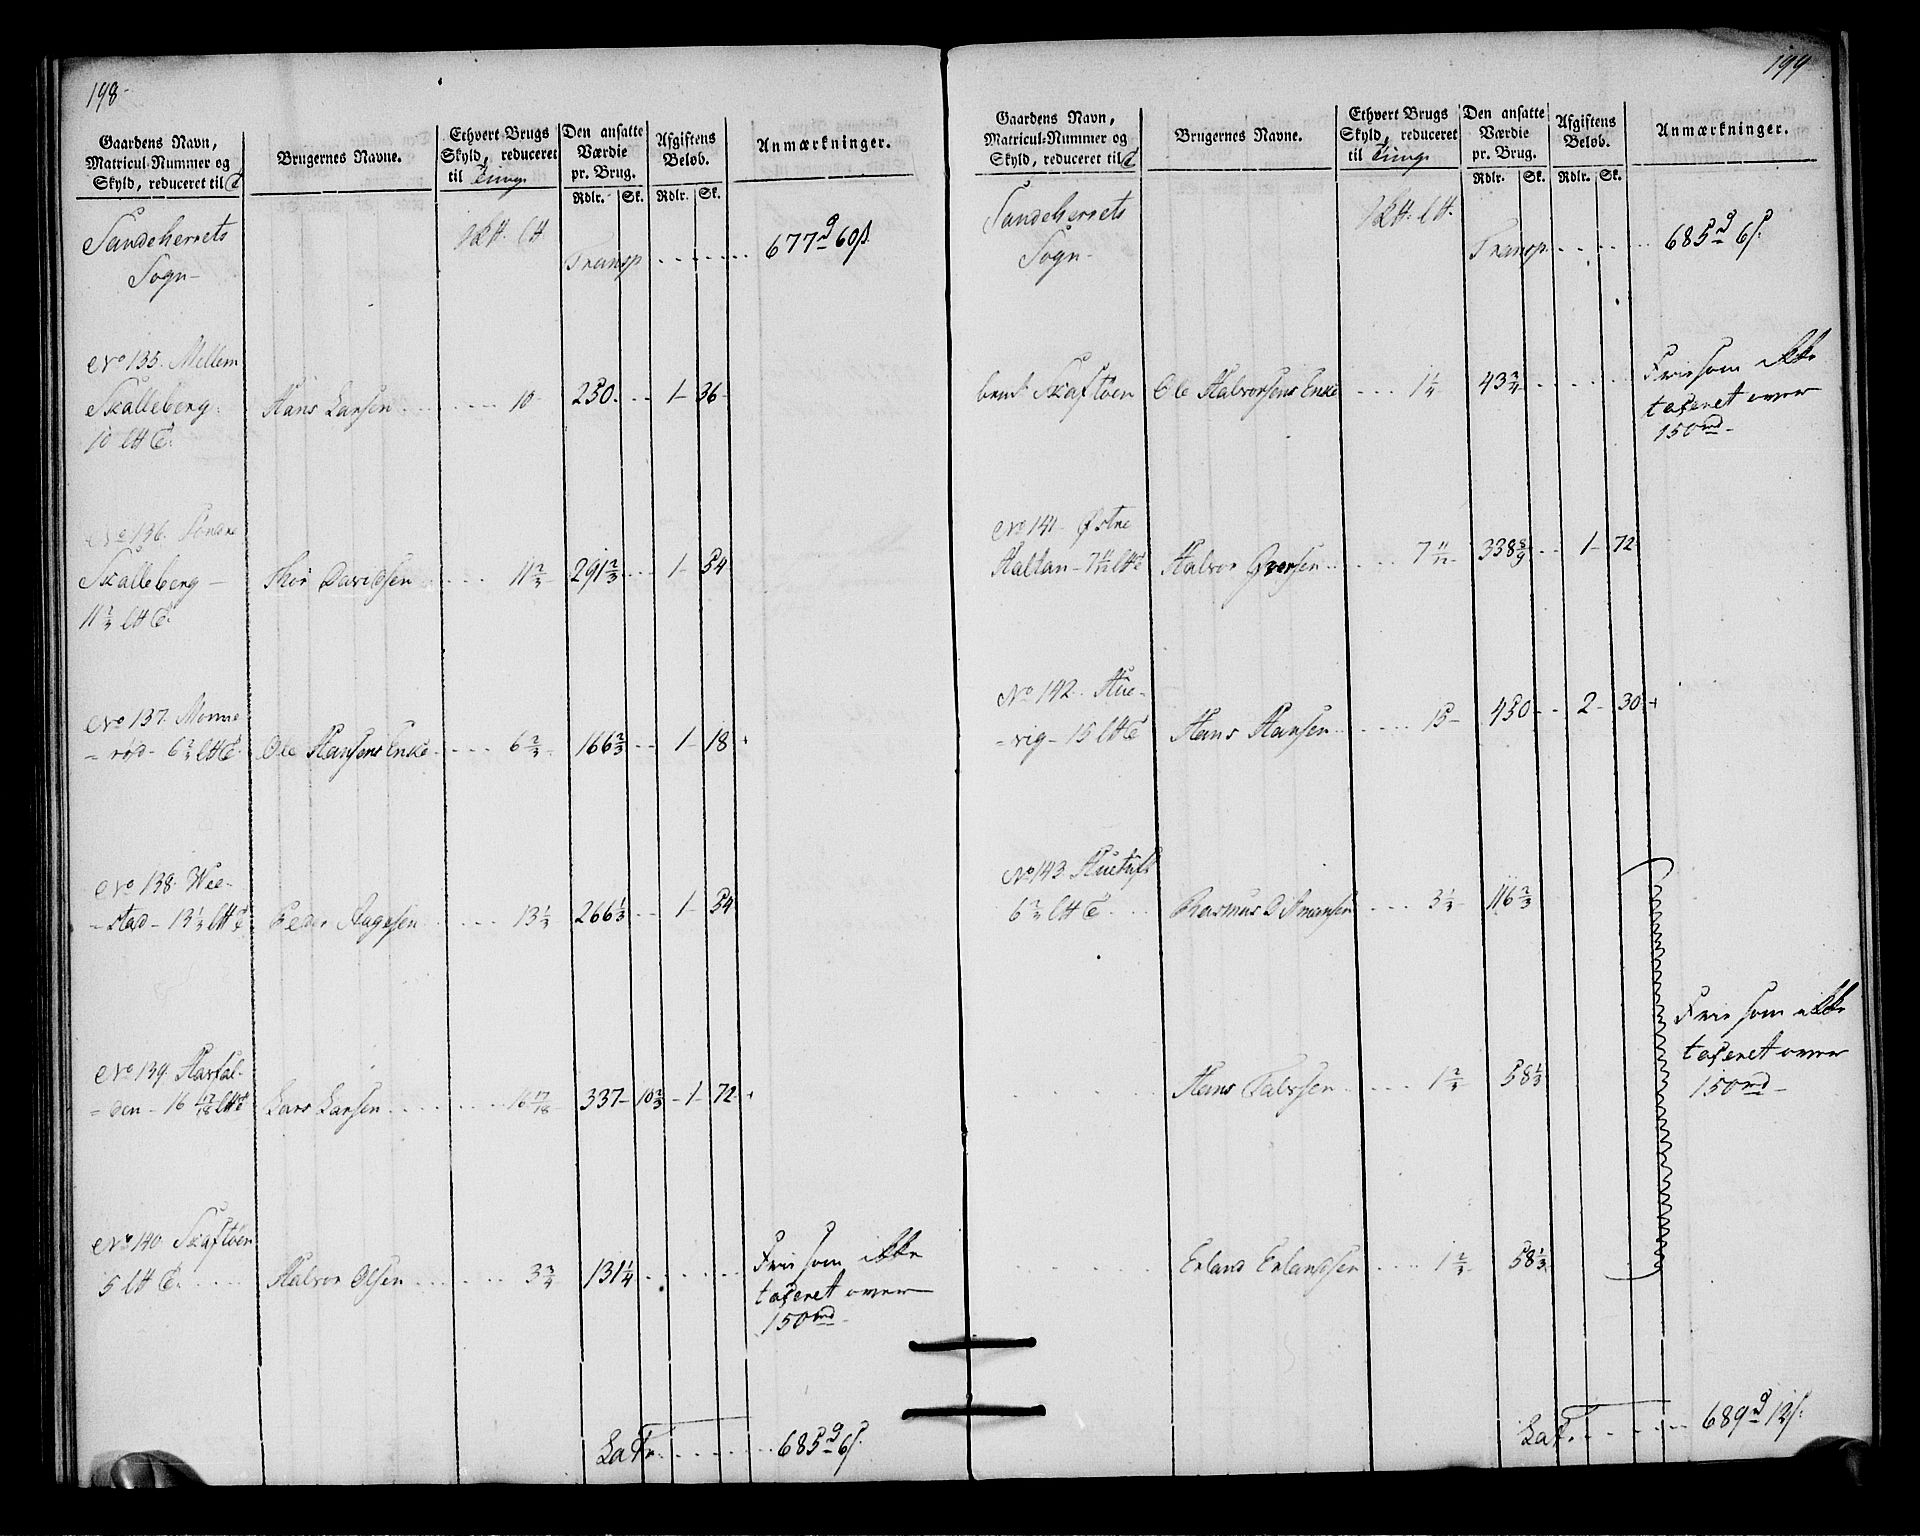 198
Gaardens Navn, Matricul-Nummer og Skyld, reduceret til
Brugernes Navne.
Ethvert Brugs Skyld, reduceret til Tunge
Den ansatte Værdie pr. Brug.
Rdlr. Sk.
Afgiftens Beløb.
Rdlr. Sk.
Anmærkninger.
Sandeherrets
Sogn
Transp 677 60
No 135. Mellem
Skalleberg
10
Hans Larsen 10 250. 1 36
No 136. Søndre
Skalleberg
11 2/3
Thor Davidsen 11 2/3 291 2/3 1 54
No 137. Monne
=rød 6 2/3
Ole Hansens Enke 6 2/3 166 2/3 1 18
No 138. Wee-
=stad 13 1/3
Peder Aagesen 13 1/3 266 1/3 1 54
No 139. Haslal-
=den 16 17/18
Lars Larsen 16 17/18 337 10 2/3 1 72
No 140. Skaftøen
5
Halvor Olsen 3 3/4 131 1/4
Frie som ikke
taxeret over
150 rd
Lat. 685 6
199
Gaardens Navn, Matricul-Nummer og Skyld, reduceret til
Brugernes Navne.
Ethvert Brugs Skyld, reduceret til Tunge
Den ansatte Værdie pr. Brug.
Rdlr. Sk.
Afgiftens Beløb.
Rdlr. Sk.
Anmærkninger.
Sandeherrets
Sogn
Transp 685 6
Skaftøen Ole Halvorsens Enke 1 1/4 43 3/4
Frie som ikke
taxeret over
150 rd
No 141. Østre
Haltan 7 11/12
Halvor 7 11/12 338 8/9 1 72
No 142. Hue-
=vig 15
Hans Hansen 15 450 2 30
No 143. Huetuft
6 2/3
Rasmus Amansen 3 1/3 116 2/3
Hans 1 2/3 58 1/3
Frie som ikke
taxeret over
150 rd
Erland Erlandsen 1 2/3 58 1/3
Lat. 689 12